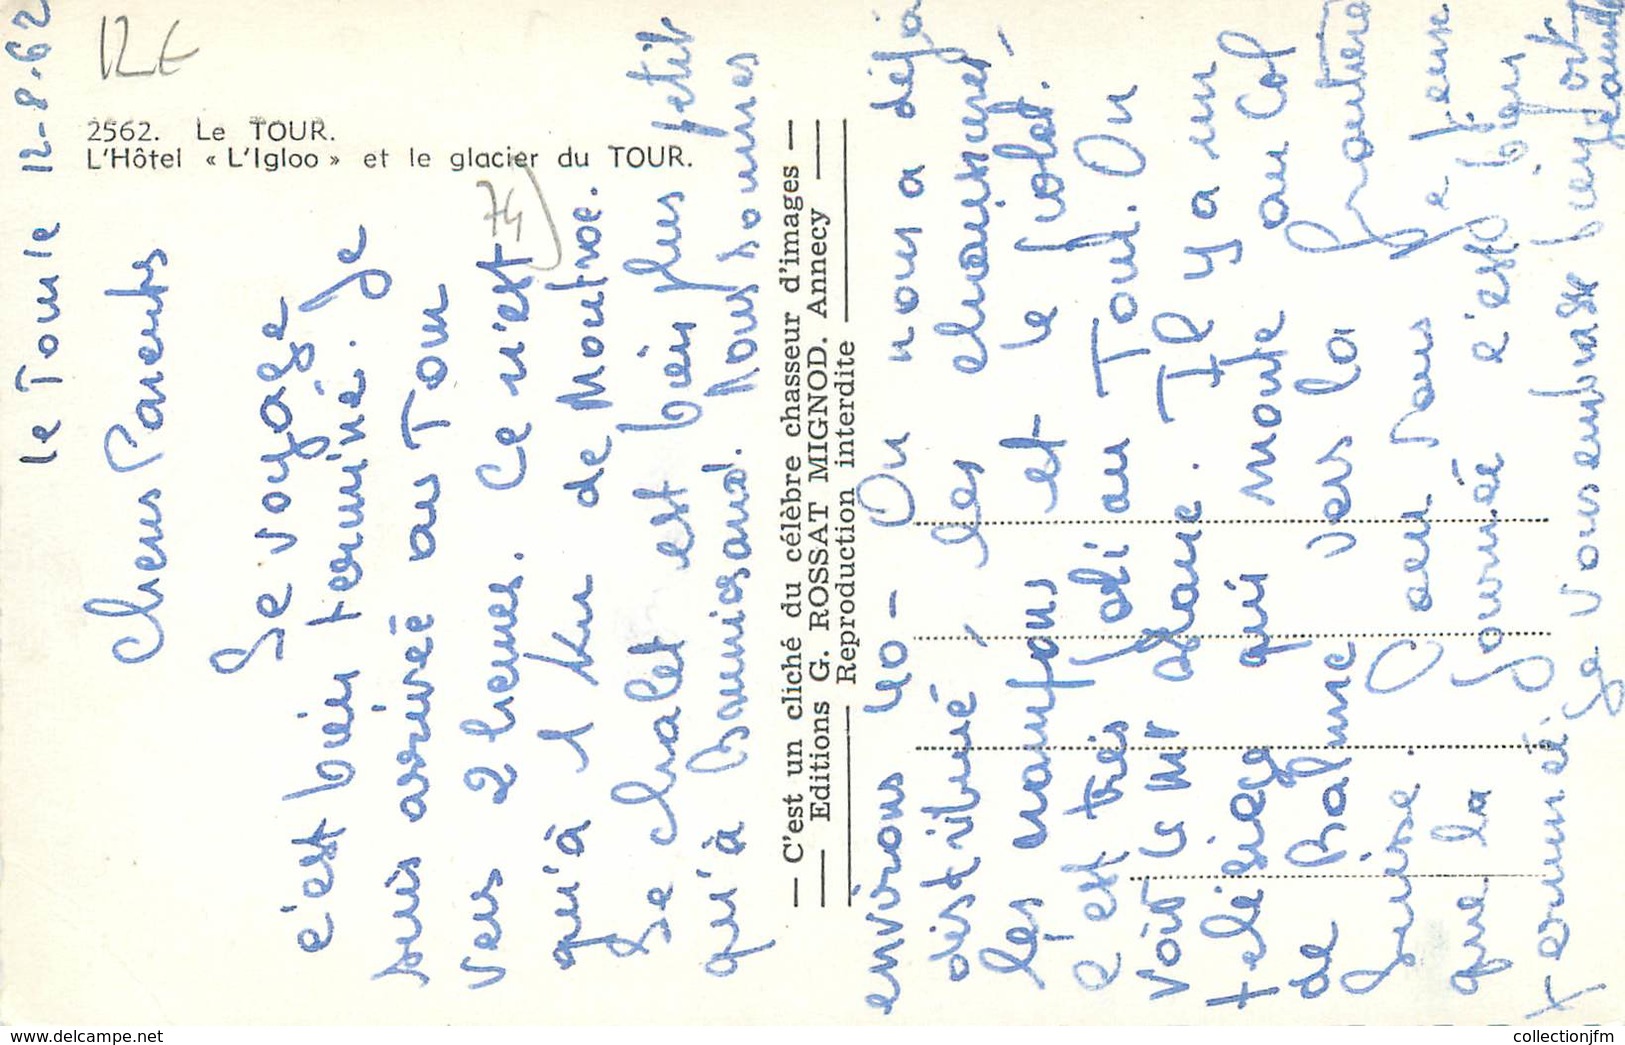 12€
2562. Le TOUR.
L'Hôtel « L'Igloo » et le glacier du TOUR.
74)
le Tour le 12-8-62
Chers Parents
Le voyage
c'est bien terminé. Je
suis arrivée au Tour
vers 2 heures. Ce n'est
qu'à 1 km de Montroc.
Le chalet est bien plus petit
qu'à Bounisand. Nous sommes
— C'est un cliché du célèbre chasseur d'images —
— Editions G. ROSSAT MIGNOD. Annecy —
Reproduction interdite
environs 40 - On nous a déjà
distribué, les chaussures,
les et le foulet.
c'est très joli au Tour. On
voit le Mt Blanc. Il y a un
télésiège qui monte au Col
de Balme vers la frontière
Suisse. Je pense
que la journée c'est bien
terminé Je vous embrasse bien fort
collectionjfm